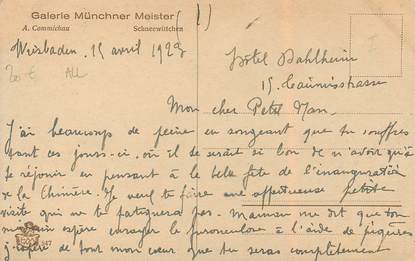 Galerie Münchner Meister
A. Commichau Schneewittchen
(1)
Wiesbaden. 15 avril 1923
Hôtel Dahlheim
15. Taunusstrasse
Mon cher Petit Man.
J'ai beaucoup de peine en songeant que tu souffres
tant ces jours-ci. où il serait si bon de n'avoir qu'à
se réjouir en pensant à la belle fête de l'inauguration
de la Chimère. Je veux te faire une affectueuse petite
visite qui ne te fatiguera pas. Maman me dit que ton
médecin espère enrayer la furonculose à l'aide de piqûres
j'espère de tout mon cœur que tu seras complètement
547